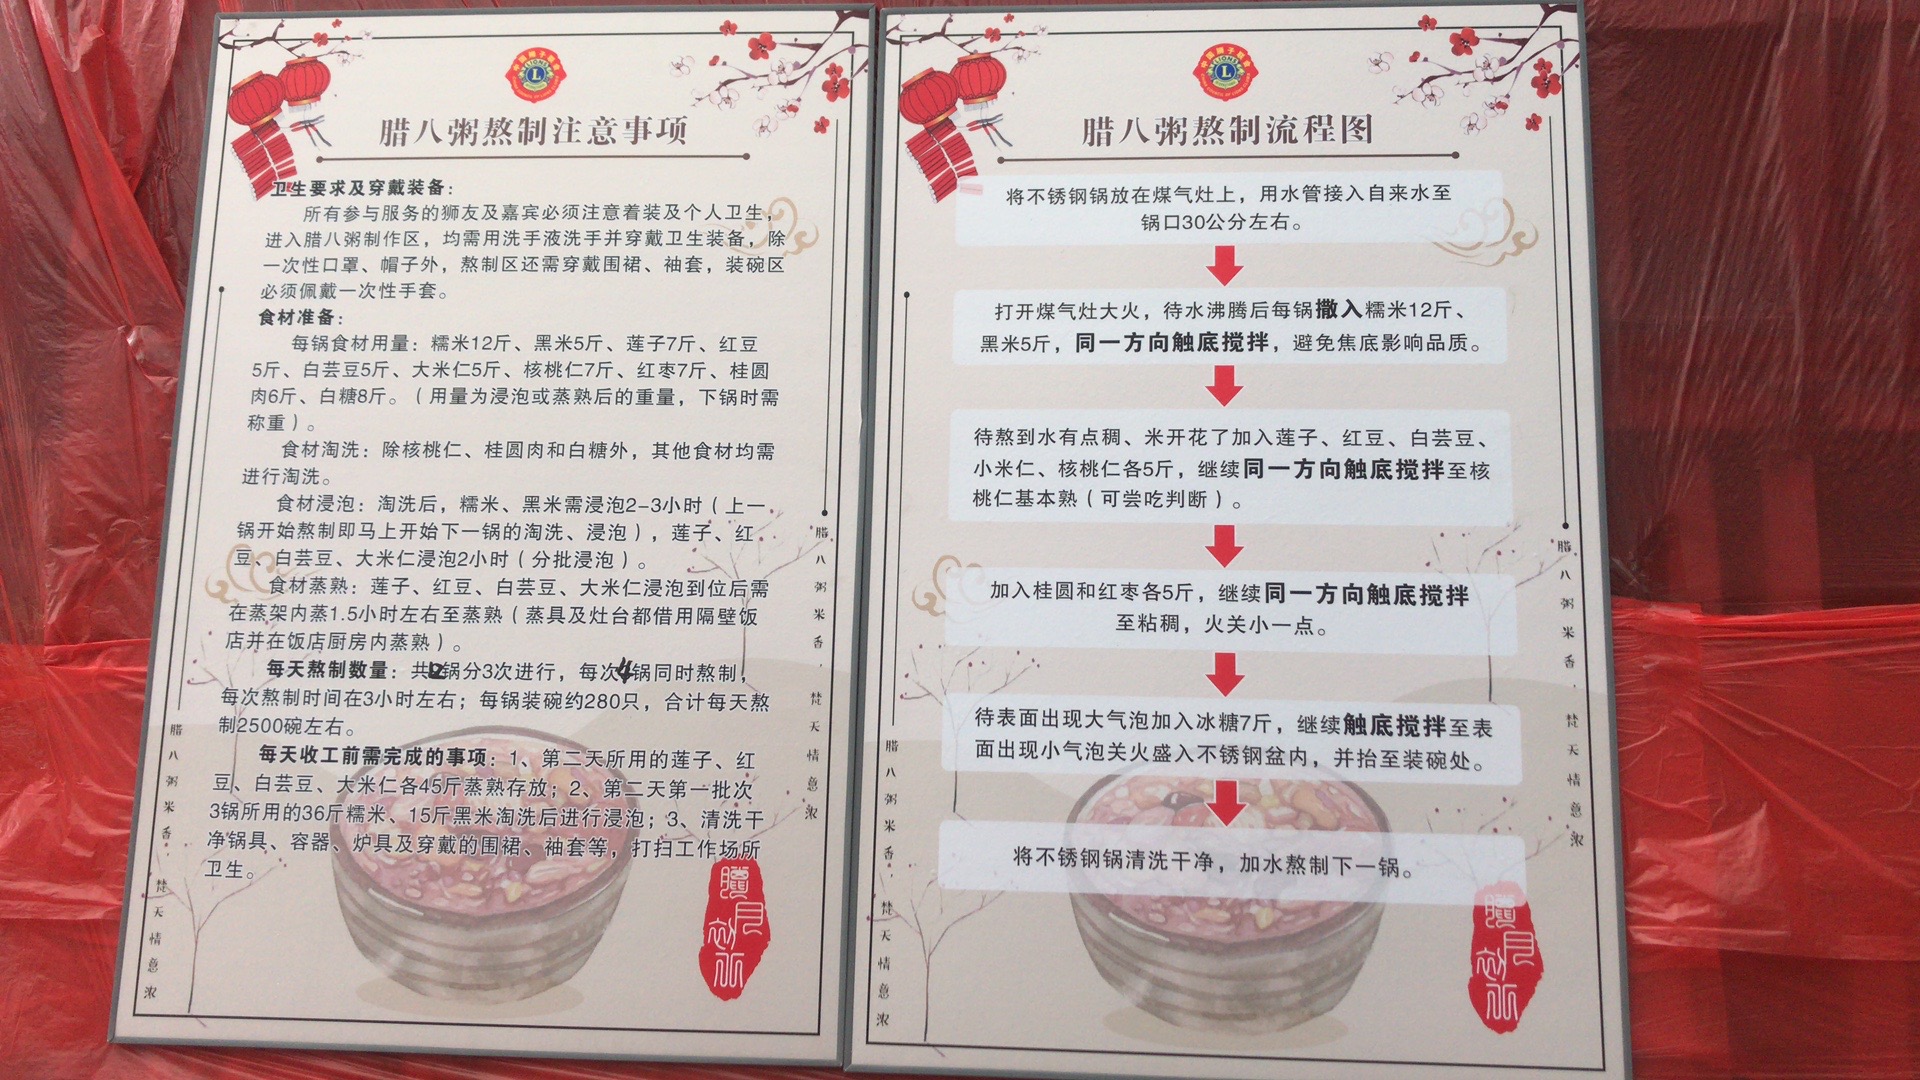 腊八粥熬制注意事项
卫生要求及穿戴装备：
所有参与服务的狮友及嘉宾必须注意着装及个人卫生，
进入腊八粥制作区，均需用洗手液洗手并穿戴卫生装备，除
一次性口罩、帽子外，熬制区还需穿戴围裙、袖套，装碗区
必须佩戴一次性手套。
食材准备：
每锅食材用量：糯米12斤、黑米5斤、莲子7斤、红豆
5斤、白芸豆5斤、大米仁5斤、核桃仁7斤、红枣7斤、桂圆
肉6斤、白糖8斤。（用量为浸泡或蒸熟后的重量，下锅时需
称重）。
食材淘洗：除核桃仁、桂圆肉和白糖外，其他食材均需
进行淘洗。
食材浸泡：淘洗后，糯米、黑米需浸泡2-3小时（上一
锅开始熬制即马上开始下一锅的淘洗、浸泡），莲子、红
豆、白芸豆、大米仁浸泡2小时（分批浸泡）。
食材蒸熟：莲子、红豆、白芸豆、大米仁浸泡到位后需
在蒸架内蒸1.5小时左右至蒸熟（蒸具及灶台都借用隔壁饭
店并在饭店厨房内蒸熟）。
每天熬制数量：共12锅分3次进行，每次4锅同时熬制，
每次熬制时间在3小时左右；每锅装碗约280只，合计每天熬
制2500碗左右。
每天收工前需完成的事项：1、第二天所用的莲子、红
豆、白芸豆、大米仁各45斤蒸熟存放；2、第二天第一批次
3锅所用的36斤糯米、15斤黑米淘洗后进行浸泡；3、清洗干
净锅具、容器、炉具及穿戴的围裙、袖套等，打扫工作场所
卫生。
腊八粥米香，梵天情意浓
腊八粥米香，梵天情意浓
腊八粥熬制流程图
将不锈钢锅放在煤气灶上，用水管接入自来水至
锅口30公分左右。
打开煤气灶大火，待水沸腾后每锅撒入糯米12斤、
黑米5斤，同一方向触底搅拌，避免焦底影响品质。
待熬到水有点稠、米开花了加入莲子、红豆、白芸豆、
小米仁、核桃仁各5斤，继续同一方向触底搅拌至核
桃仁基本熟（可尝吃判断）。
加入桂圆和红枣各5斤，继续同一方向触底搅拌
至粘稠，火关小一点。
待表面出现大气泡加入冰糖7斤，继续触底搅拌至表
面出现小气泡关火盛入不锈钢盆内，并抬至装碗处。
将不锈钢锅清洗干净，加水熬制下一锅。
腊八粥米香，梵天情意浓
腊八粥米香，梵天情意浓